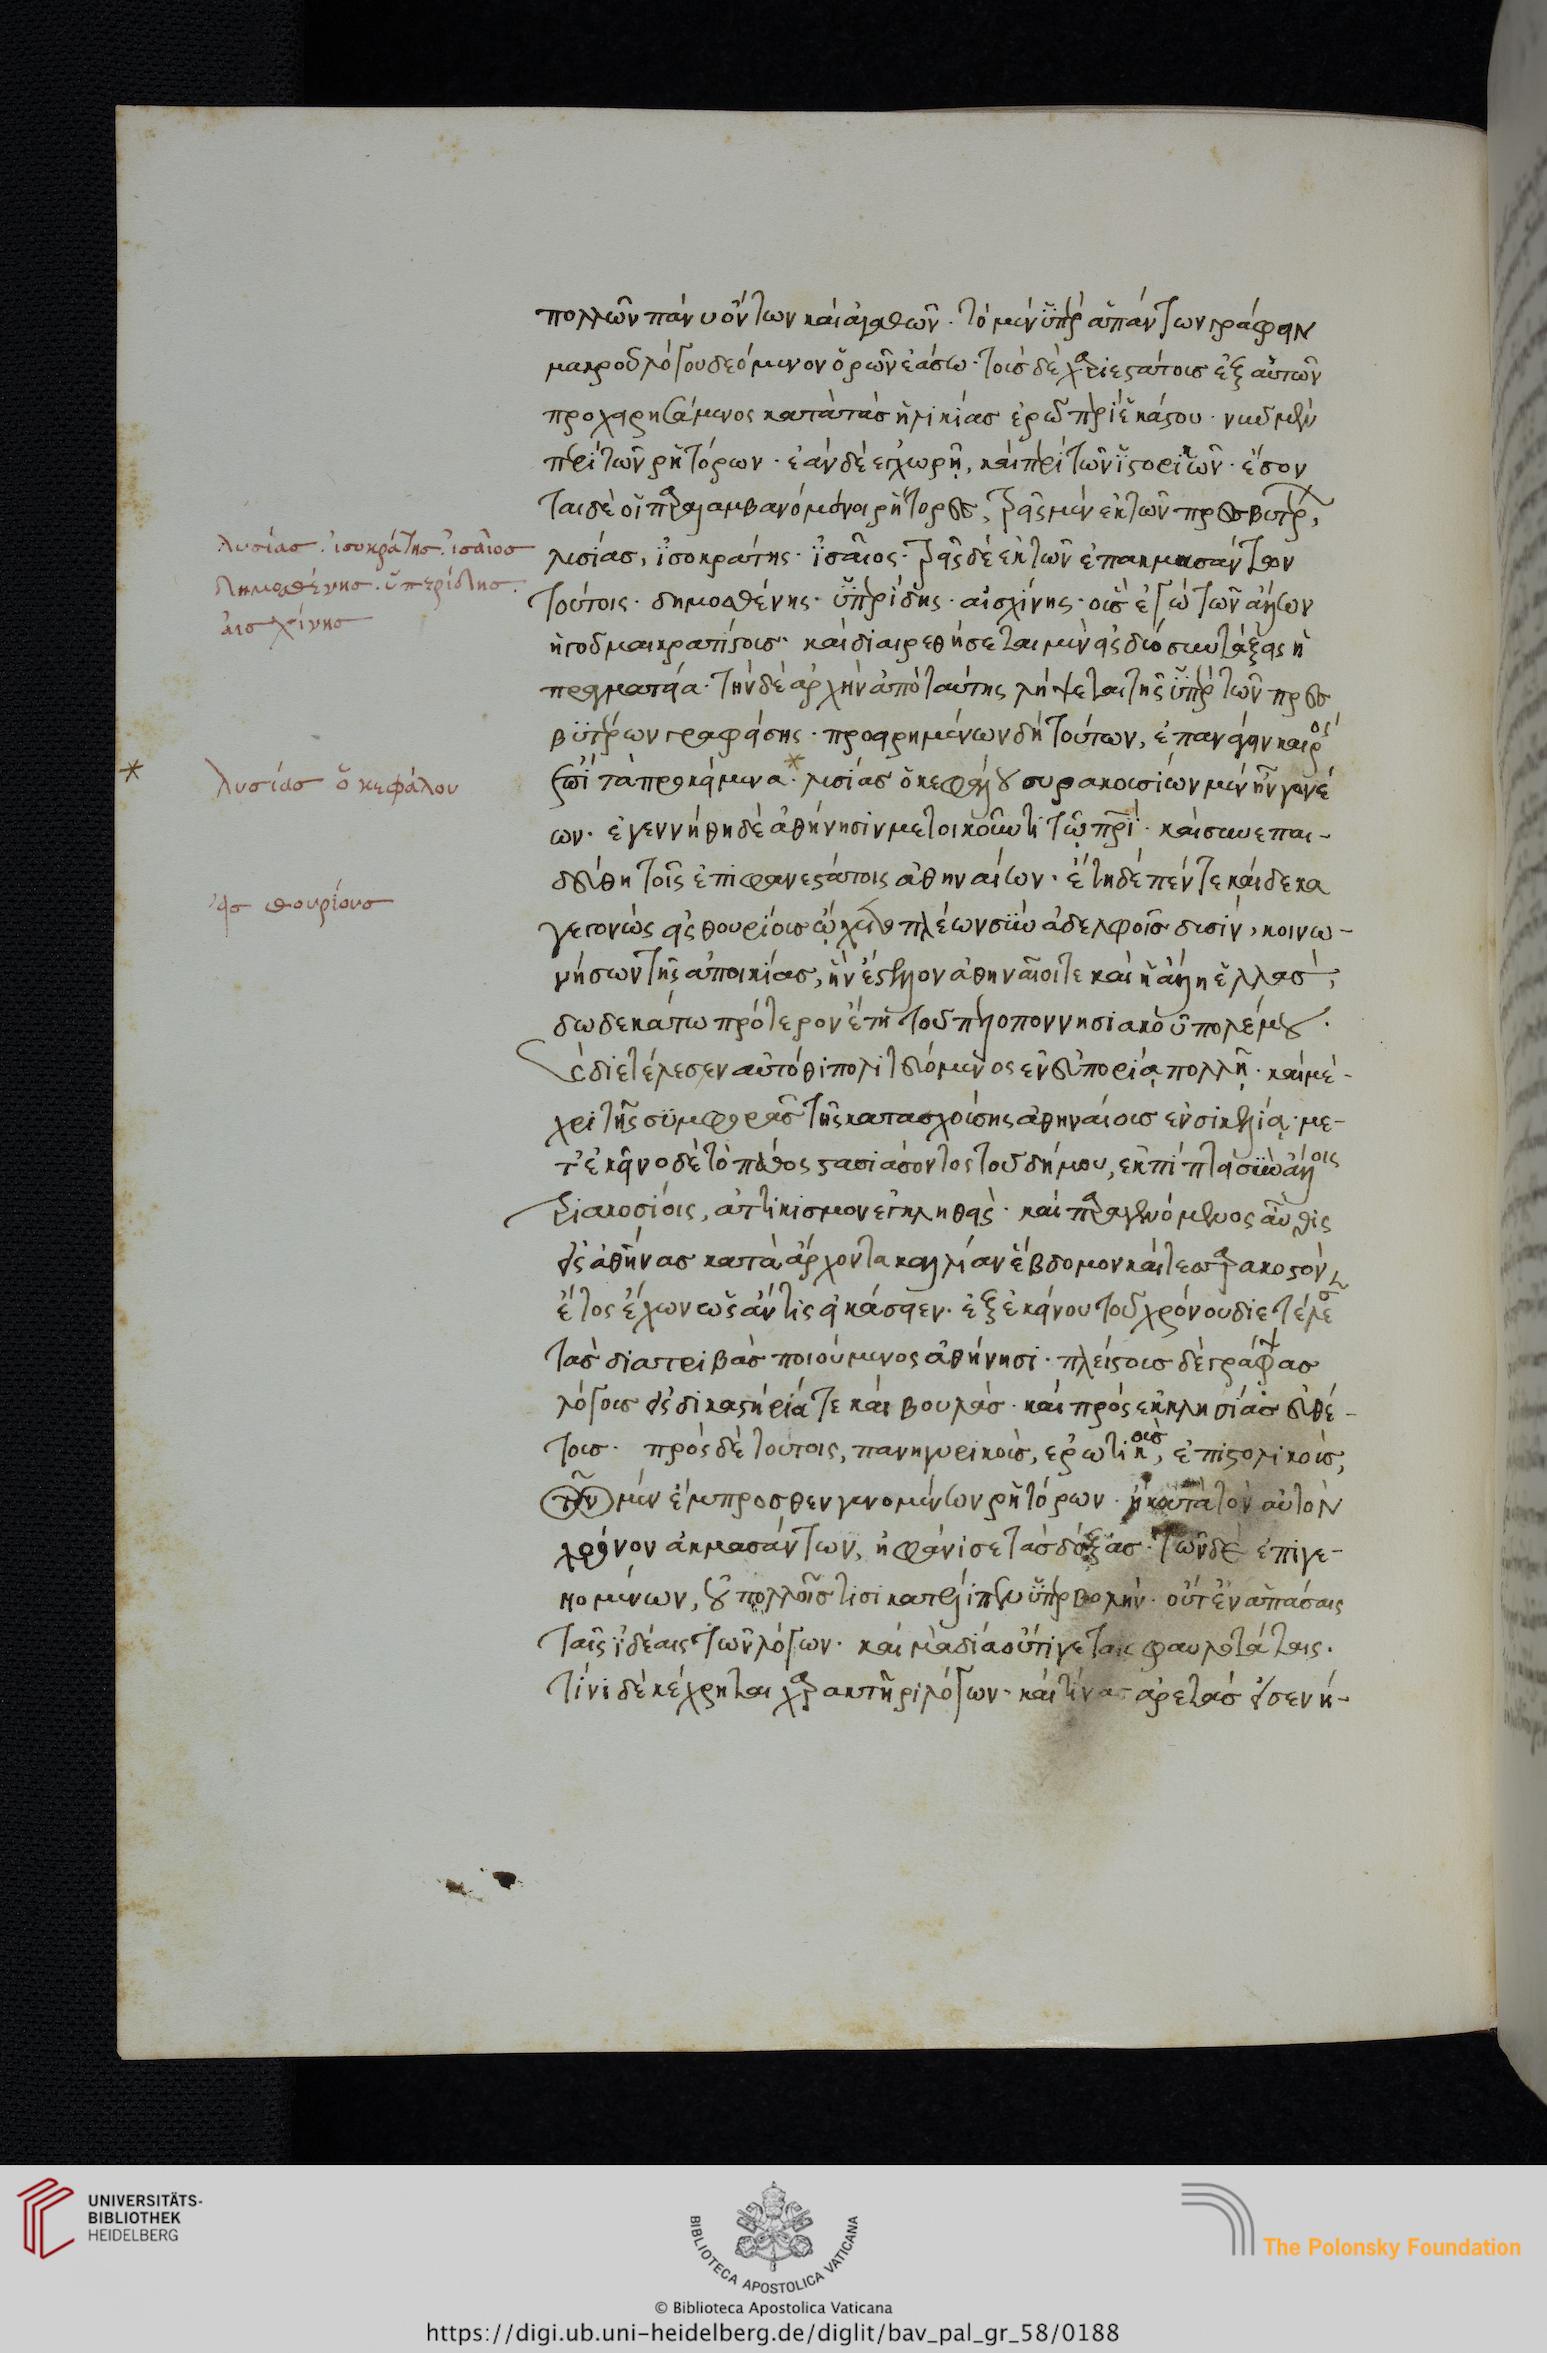 πολλῶν πάνυ ὄντων καὶ ἀγαθῶν· τὸ μὲν ὑπὲρ ἁπάντων γράφειν
μακροῦ λόγου δεόμενον ὁρῶν ἐάσω· τοὺς δὲ χαριεστάτους ἐξ αὐτῶν
προχειρησάμενος κατὰ τὰς ἡλικίας ἐρῶ περὶ ἑκάστου· νῦν μὲν
περὶ τῶν ῥητόρων· ἐὰν δὲ ἐγχωρῇ, καὶ περὶ τῶν ἱστορικῶν· ἔσον
ται δὲ οἱ παραλαμβανόμενοι ῥήτορες, τρεῖς μὲν ἐκ τῶν πρεσβυτέρων,
λυσίας, ἰσοκράτης· ἰσαῖος· τρεῖς δὲ ἐκ τῶν ἐπακμασάντων
τούτοις· δημοσθένης· ὑπερίδης· αἰσχίνης· οὓς ἐγὼ τῶν ἄλλων
ἡγοῦμαι κρατίστους· καὶ διαιρεθήσεται μὲν εἰς δύο συντάξεις ἡ
πραγματεία· τὴν δὲ ἀρχὴν ἀπὸ ταύτης λήψεται τῆς ὑπὲρ τῶν πρεσ
βυτέρων γραφείσης· προειρημένων δὴ τούτων, ἐπανάγειν καιρὸς
ἐπὶ τὰ προκείμενα· λυσίας ὁ κεφάλου συρακουσίων μὲν ἦν γονέ
ων· ἐγεννήθη δὲ ἀθήνησιν μετοικοῦντι τῷ πατρὶ· καὶ συνεπαι-
δεύθη τοῖς ἐπιφανεστάτοις ἀθηναίων· ἔτη δὲ πέντε καὶ δέκα
γεγονὼς εἰς θουρίους ᾤχετο πλέων σὺν ἀδελφοῖς δυσίν, κοινω-
νήσων τῆς ἀποικίας, ἣν ἔστελλον ἀθηναῖοί τε καὶ ἡ ἄλλη ἑλλάς,
δωδεκάτω πρότερον ἔτη τοῦ πελοποννησιακοῦ πολέμου·
καὶ διετέλεσεν αὐτόθι πολιτευόμενος ἐν εὐπορίᾳ πολλῇ· καὶ μέ-
χρι τῆς συμφορᾶς τῆς κατασχούσης ἀθηναίους ἐν σικελίᾳ· με-
τ' ἐκεῖνο δὲ τὸ πάθος στασιάσοντος τοῦ δήμου, ἐκπίπτει σὺν ἄλλοις
τριακοσίοις, ἀττικισμὸν ἐγκληθεὶς· καὶ παραγενόμενος αὖθις
εἰς ἀθήνας κατὰ ἄρχοντα καλλίαν ἕβδομον καὶ τεσσαρακοστὸν
ἔτος ἔχων ὡς ἄν τις εἰκάσειεν· ἐξ ἐκείνου τοῦ χρόνου διετέλεσε
τὰς διατριβὰς ποιούμενος ἀθήνησι· πλείστους δὲ γράψας
λόγους εἰς δικαστήριά τε καὶ βουλὰς· καὶ πρὸς ἐκκλησίας εὐθέ-
τους· πρὸς δὲ τούτοις, πανηγυρικοὺς, ἐρωτικοὺς, ἐπιστολικοὺς,
τῶν μὲν ἔμπροσθεν γενομένων ῥητόρων· ἢ κατὰ τὸν αὐτὸν
χρόνον ἀκμασάντων, ἠφάνισε τὰς δόξας· τῶν δὲ ἐπιγε-
νομένων, οὐ πολλοῖς τισι κατέλιπεν ὑπερβολὴν· οὔτ' ἐν ἁπάσαις
ταῖς ἰδέαις τῶν λόγων· καὶ μὰ δία οὔτι γε ταῖς φαυλοτάταις.
τίνι δὲ κέχρηται χαρακτῆρι λόγων· καὶ τίνας ἀρετὰς εἰσενή-
λυσίας. ἰσοκράτης. ἰσαῖος
δημοσθένης. ὑπερίδης.
αἰσχίνης
*
λυσίας ὁ κεφάλου
εἰς θουρίους
UNIVERSITÄTS-
BIBLIOTHEK
HEIDELBERG
BIBLIOTECA APOSTOLICA VATICANA
The Polonsky Foundation
© Biblioteca Apostolica Vaticana
https://digi.ub.uni-heidelberg.de/diglit/bav_pal_gr_58/0188